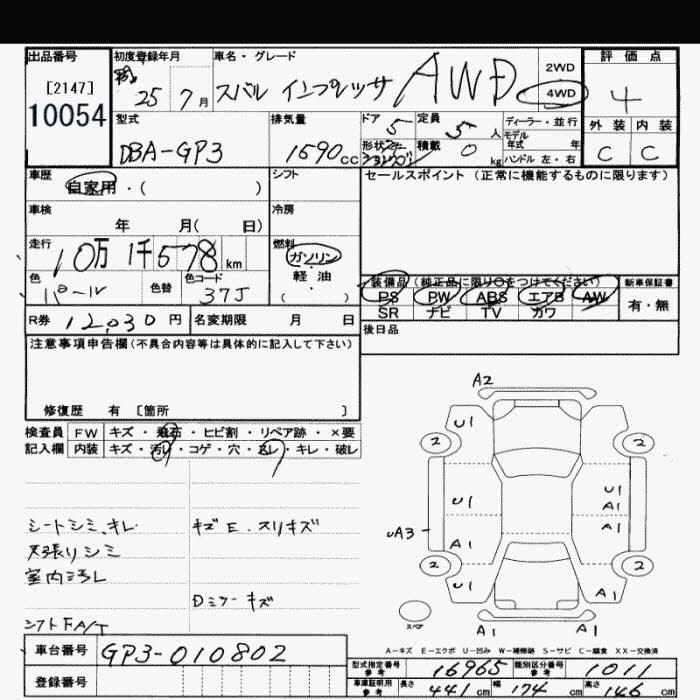 出品番号
[2147]
10054
初度登録年月
25 7月
車名・グレード
スバル インプレッサ AWD
2WD
4WD
評価点
4
外装 内装
C C
型式
DBA-GP3
排気量
1590cc
ドア
5
形状
定員
5人
積載
0kg
ディーラー・並行
モデル
年式 年
ハンドル 左・右
車歴
自家用・( )
シフト
車検
年 月( 日)
冷房
走行
10万1千578km
燃料
ガソリン
軽油
( ・ )
色
パール
色替
色コード
37J
セールスポイント(正常に機能するものに限ります)
装備品(純正品に限り○をつけてください)
PS PW ABS エアB AW
SR ナビ TV カワ
新車保証書
有・無
後日品
R券 12,030円
名変期限 月 日
注意事項申告欄(不具合内容等は具体的に記入して下さい)
修復歴 有 〔箇所 〕
検査員 FW キズ・飛石・ヒビ割・リペア跡・×要
記入欄 内装 キズ・汚レ・コゲ・穴・スレ・キレ・破レ
シートシミ、キレ
天張りシミ
室内汚レ
シフトFA/T
キズE、スリキズ
Dミラーキズ
A2
U1
2 2
U1
U1
A1
uA3
A1
A1
2 2
U1
A1
A1 A1
スペア
A-キズ E-エクボ U-凹み W-補修跡 S-サビ C-腐食 XX-交換済
車台番号 GP3-010802
登録番号
型式指定番号
参考
16965
類別区分番号
参考
1011
車庫証明用
参考
長さ 441cm 幅 174cm 高さ 146cm